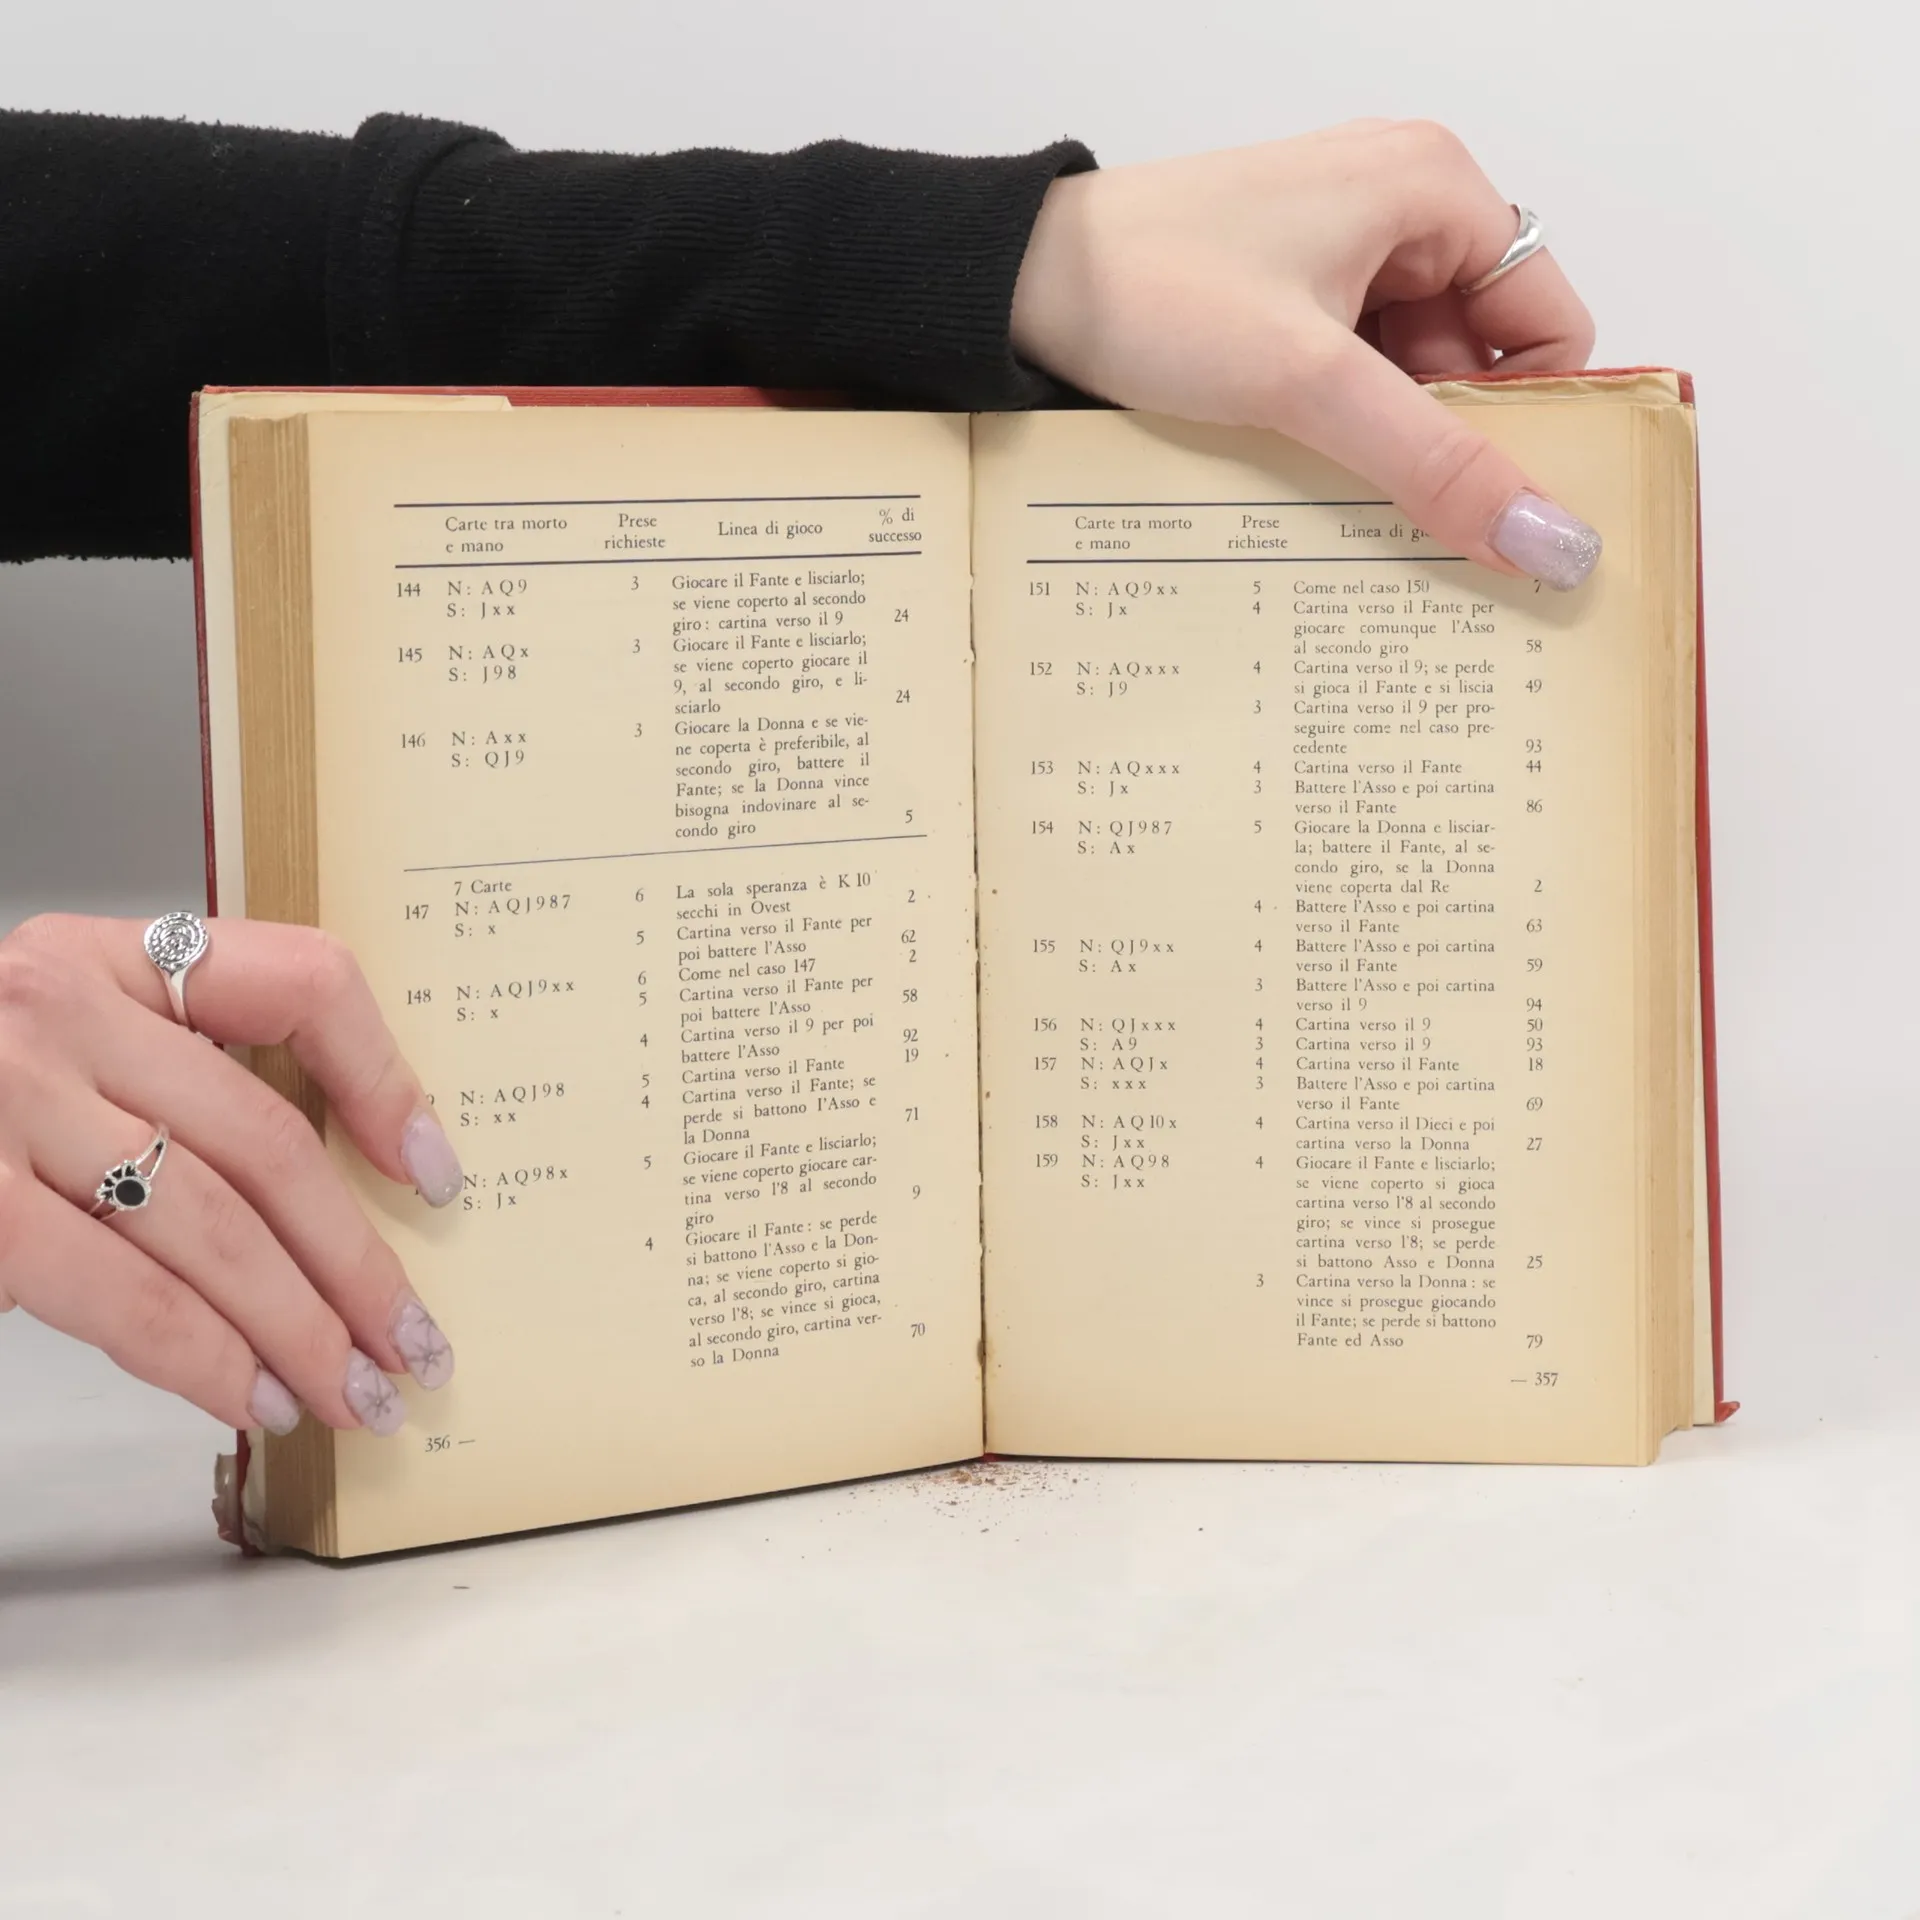 Carte tra morto Prese Linea di gioco % di
e mano richieste successo
144 N: A Q 9 3 Giocare il Fante e lisciarlo;
S: J x x se viene coperto al secondo
giro: cartina verso il 9 24
145 N: A Q x 3 Giocare il Fante e lisciarlo;
S: J 9 8 se viene coperto giocare il
9, al secondo giro, e li-
sciarlo 24
146 N: A x x 3 Giocare la Donna e se vie-
S: Q J 9 ne coperta è preferibile, al
secondo giro, battere il
Fante; se la Donna vince
bisogna indovinare al se-
condo giro 5
7 Carte
147 N: A Q J 9 8 7 6 La sola speranza è K 10
S: x secchi in Ovest 2
5 Cartina verso il Fante per
poi battere l'Asso 62
148 N: A Q J 9 x x 6 Come nel caso 147 2
S: x 5 Cartina verso il Fante per
poi battere l'Asso 58
4 Cartina verso il 9 per poi
battere l'Asso 92
9 N: A Q J 9 8 5 Cartina verso il Fante 19
S: x x 4 Cartina verso il Fante; se
perde si battono l'Asso e
la Donna 71
N: A Q 9 8 x 5 Giocare il Fante e lisciarlo;
S: J x se viene coperto giocare car-
tina verso l'8 al secondo
giro 9
4 Giocare il Fante: se perde
si battono l'Asso e la Don-
na; se viene coperto si gio-
ca, al secondo giro, cartina
verso l'8; se vince si gioca,
al secondo giro, cartina ver-
so la Donna 70
356 —
Carte tra morto Prese Linea di
e mano richieste
151 N: A Q 9 x x 5 Come nel caso 150 7
S: J x 4 Cartina verso il Fante per
giocare comunque l'Asso
al secondo giro 58
152 N: A Q x x x 4 Cartina verso il 9; se perde
S: J 9 si gioca il Fante e si liscia 49
3 Cartina verso il 9 per pro-
seguire come nel caso pre-
cedente 93
153 N: A Q x x x 4 Cartina verso il Fante 44
S: J x 3 Battere l'Asso e poi cartina
verso il Fante 86
154 N: Q J 9 8 7 5 Giocare la Donna e lisciar-
S: A x la; battere il Fante, al se-
condo giro, se la Donna
viene coperta dal Re 2
4 Battere l'Asso e poi cartina
verso il Fante 63
155 N: Q J 9 x x 4 Battere l'Asso e poi cartina
S: A x verso il Fante 59
3 Battere l'Asso e poi cartina
verso il 9 94
156 N: Q J x x x 4 Cartina verso il 9 50
S: A 9 3 Cartina verso il 9 93
157 N: A Q J x 4 Cartina verso il Fante 18
S: x x x 3 Battere l'Asso e poi cartina
verso il Fante 69
158 N: A Q 10 x 4 Cartina verso il Dieci e poi
S: J x x cartina verso la Donna 27
159 N: A Q 9 8 4 Giocare il Fante e lisciarlo;
S: J x x se viene coperto si gioca
cartina verso l'8 al secondo
giro; se vince si prosegue
cartina verso l'8; se perde
si battono Asso e Donna 25
3 Cartina verso la Donna: se
vince si prosegue giocando
il Fante; se perde si battono
Fante ed Asso 79
— 357